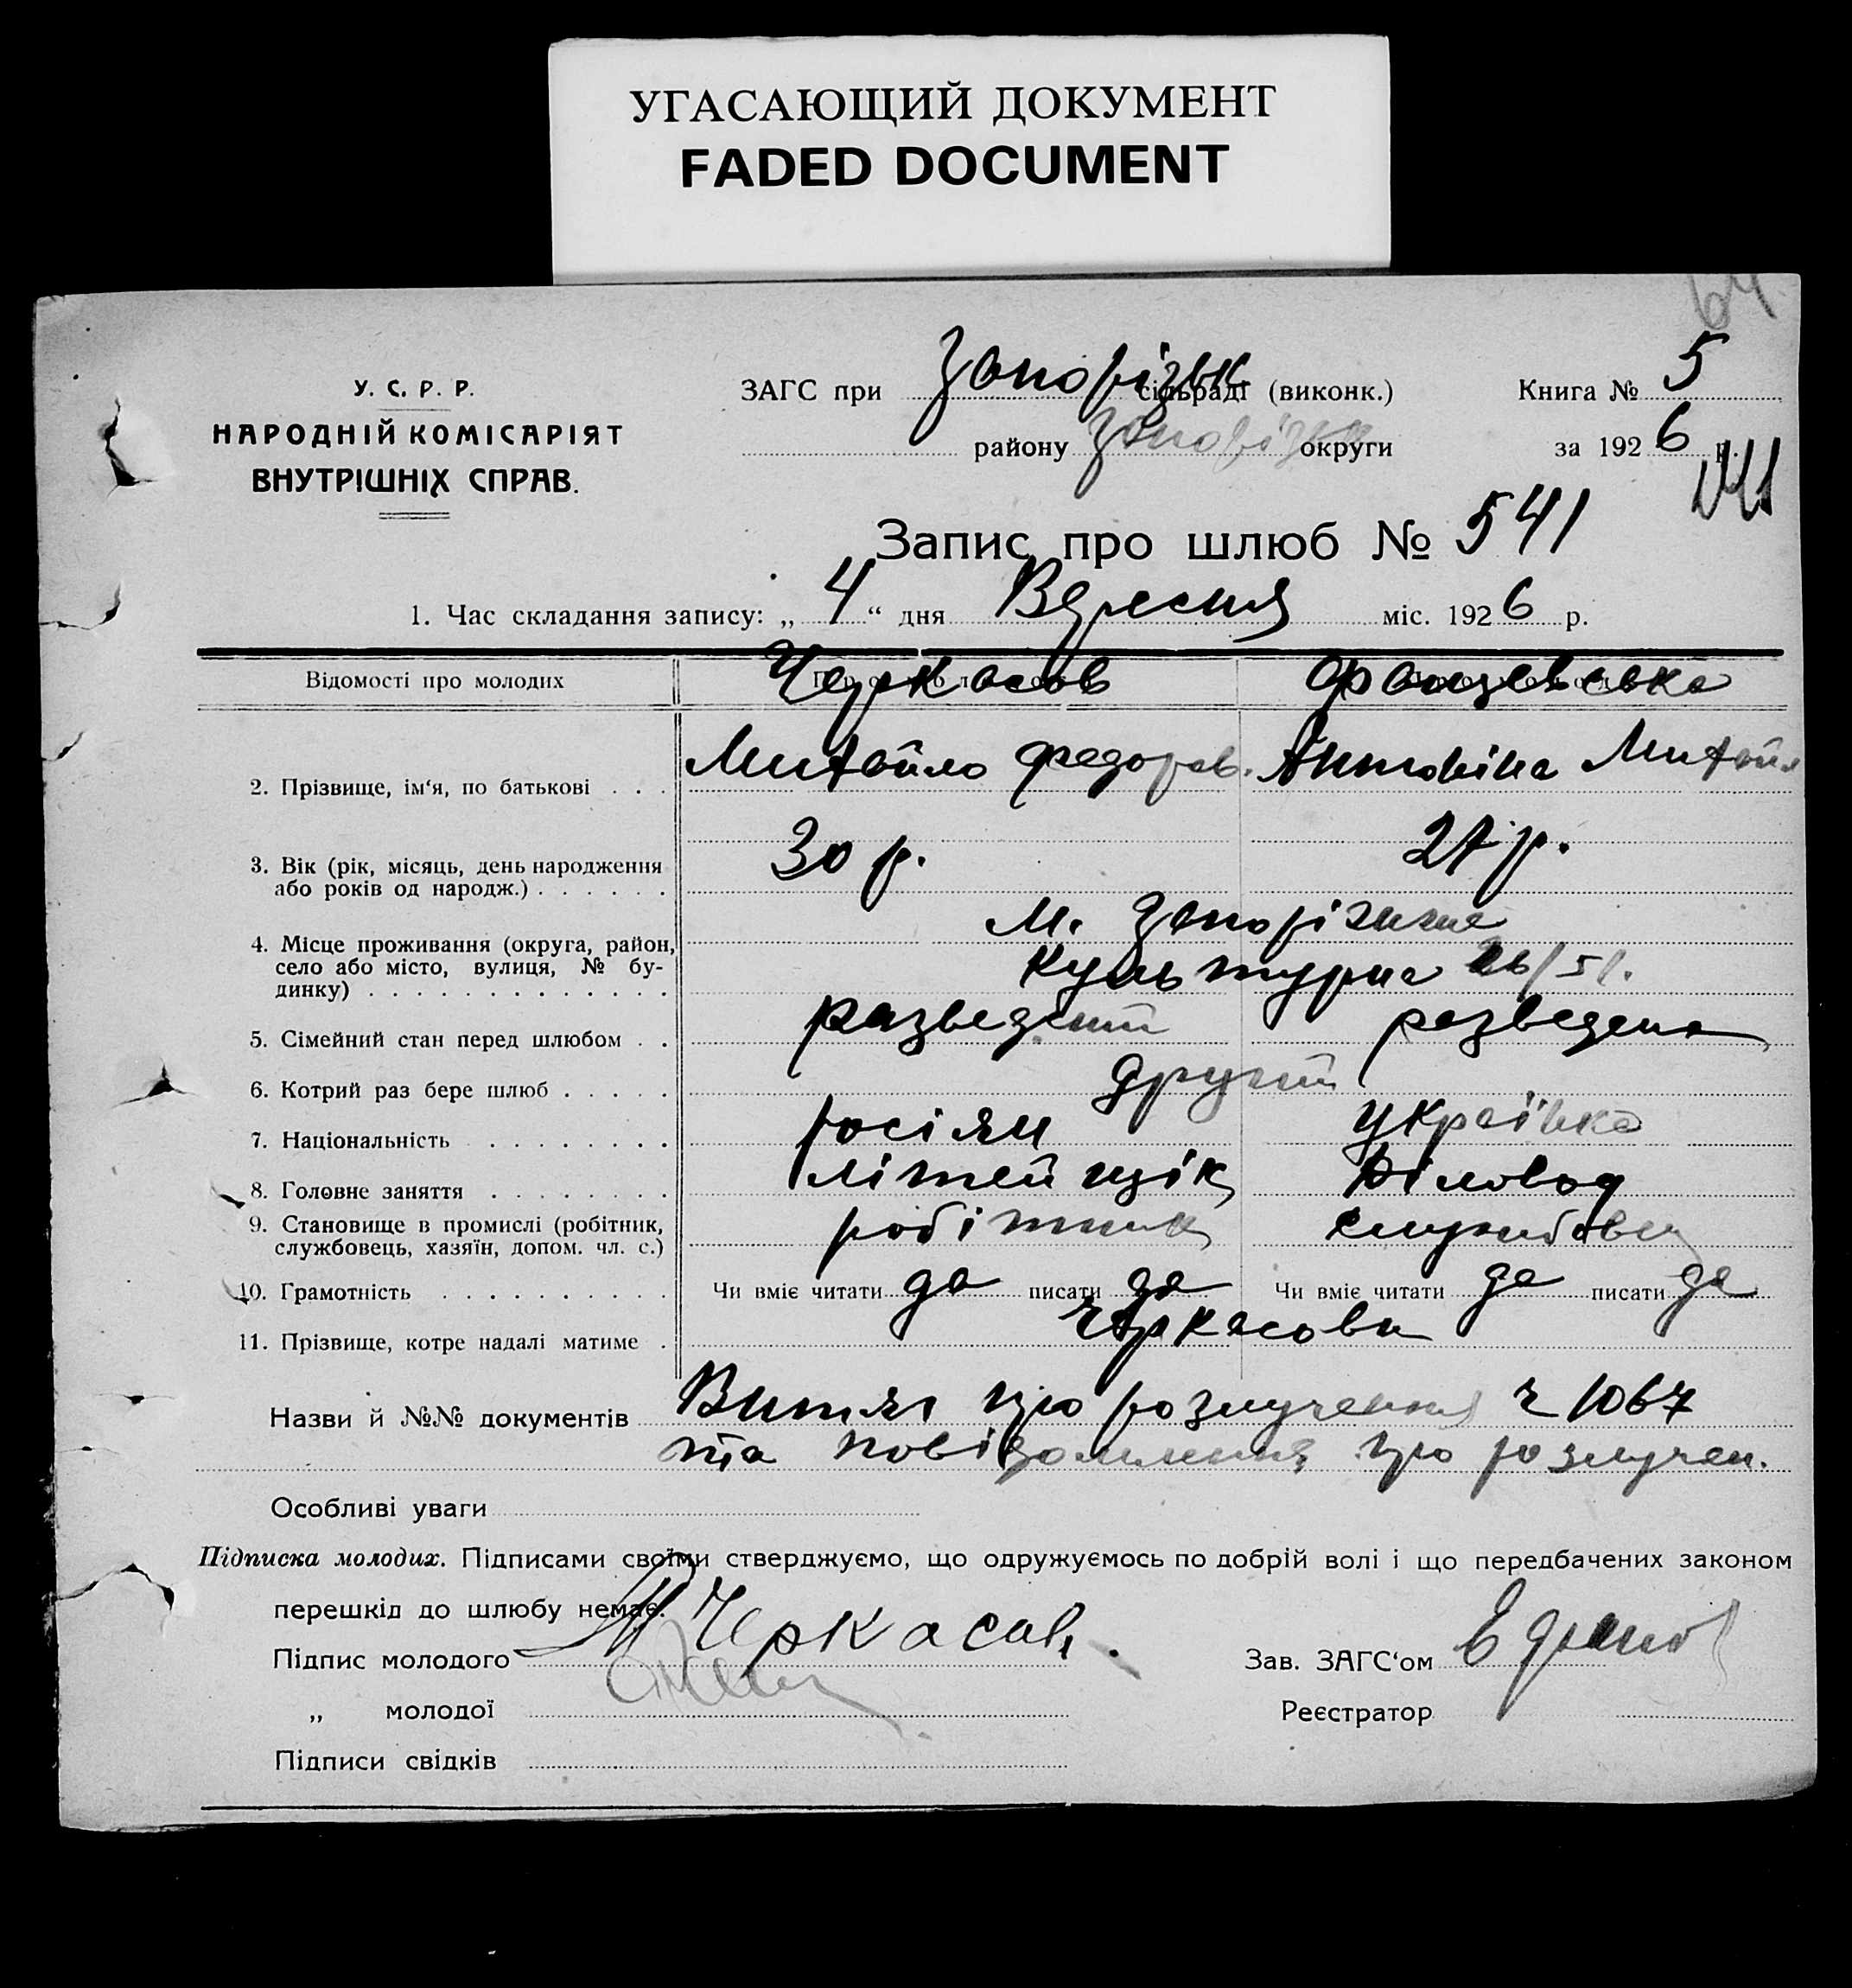 УГАСАЮЩИЙ ДОКУМЕНТ
FADED DOCUMENT
64
У. С. Р. Р.
НАРОДНІЙ КОМІСАРІЯТ
ВНУТРІШНІХ СПРАВ.
ЗАГС при Запорізьк сільраді (виконк.)
району Запорізьк округи
Книга № 5
за 1926 р.
Запис про шлюб № 541
1. Час складання запису: „ 4 “ дня Вересня міс. 1926 р.
Відомості про молодих Черкасов
2. Прізвище, ім‘я, по батькові . . . Михайло Федоров. Антоніна Михайл
3. Вік (рік, місяць, день народження 30 р. 27 р.
або років од народж.) . . . . . .
4. Місце проживання (округа, район, м. Запоріжжє
село або місто, вулиця, № бу- Культурна 26/51.
динку) . . . . . . . . . . . . .
5. Сімейний стан перед шлюбом . . разведений разведена
6. Котрий раз бере шлюб . . . . . другий
7. Національність . . . . . . . . росіян українка
8. Головне заняття . . . . . . . . літейщік діловод
9. Становище в промислі (робітник, робітник службовець
службовець, хазяїн, допом. чл. с.)
10. Грамотність . . . . . . . . . . Чи вміє читати да писати да Чи вміє читати да писати да
11. Прізвище, котре надалі матиме . Черкасови
Назви й №№ документів Витяг про розлучення ч 1067
та повідомлення про розлучен.
Особливі уваги
Підписка молодих. Підписами своїми стверджуємо, що одружуємось по добрій волі і що передбачених законом
перешкід до шлюбу немає.
Підпис молодого М Черкасов.
Зав. ЗАГС‘ом
„ молодої
Реєстратор
Підписи свідків